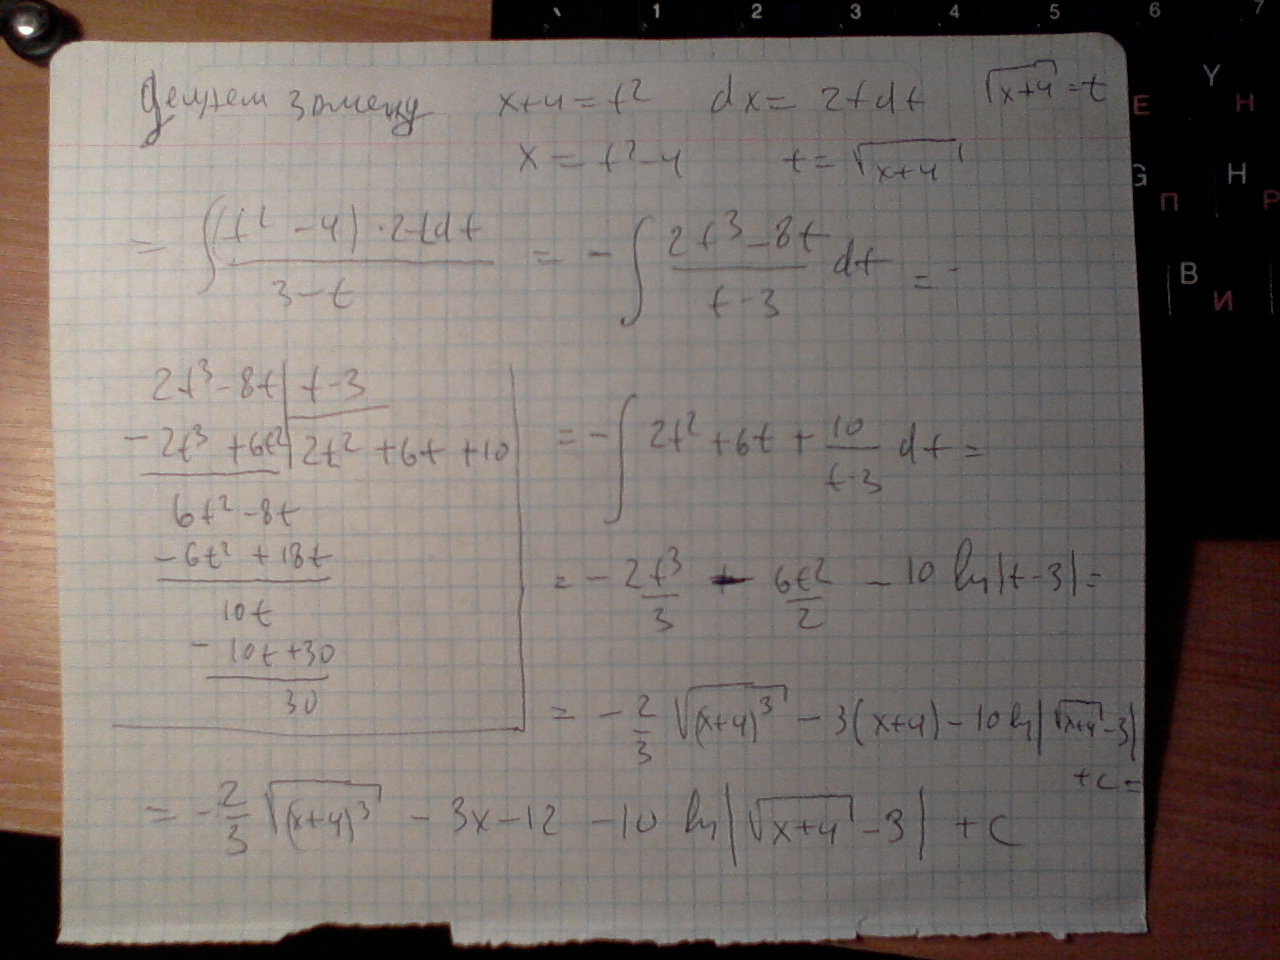 Делаем замену x+4 = t² dx = 2tdt √(x+4) = t
x = t²-4 t = √(x+4)
= ∫ (t² - 4)·2tdt / (3-t) = - ∫ (2t³-8t)/(t-3) dt = -
2t³-8t | t-3
- 2t³ + 6t² | 2t² + 6t + 10
6t² - 8t
- 6t² + 18t
10t
- 10t + 30
30
= - ∫ 2t² + 6t + 10/(t-3) dt =
= - 2t³/3 - 6t²/2 - 10 ln|t-3| =
= - 2/3 √(x+4)³ - 3(x+4) - 10 ln|√(x+4) - 3| + c =
= - 2/3 √(x+4)³ - 3x - 12 - 10 ln|√(x+4) - 3| + c
1 2 3 4 5 6 7
Е Y Н
G П H Р
B И